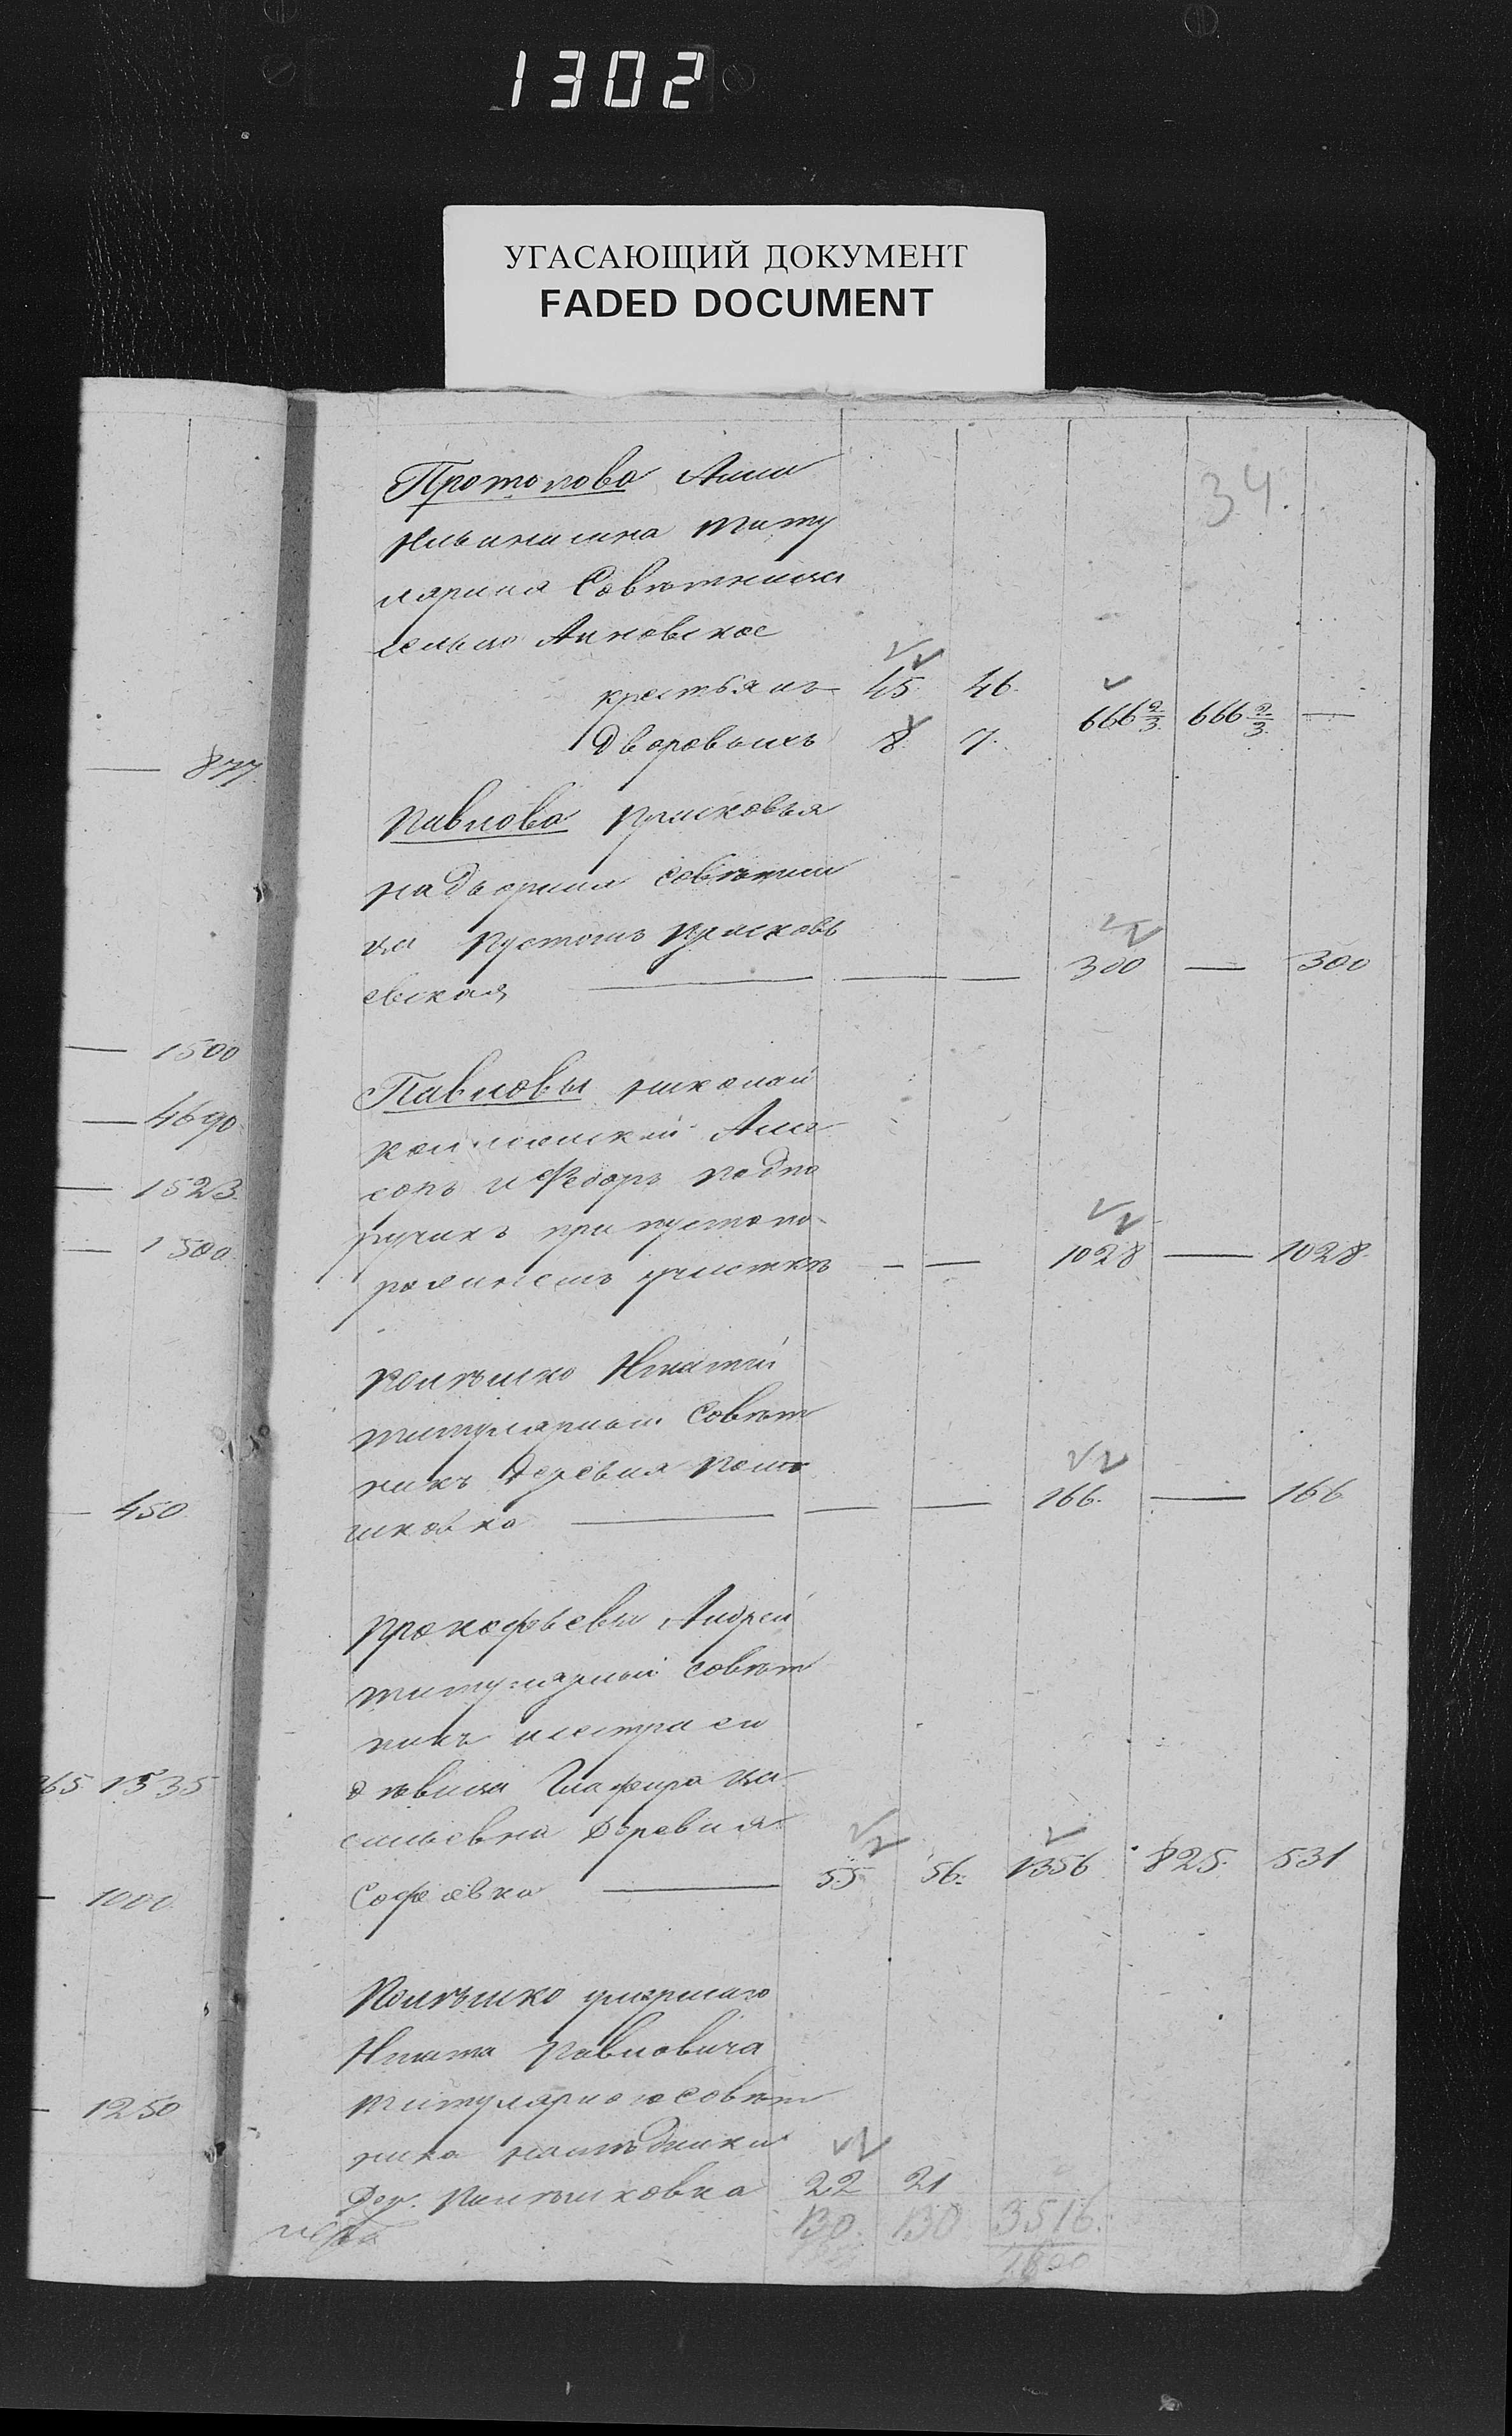 1302
УГАСАЮЩИЙ ДОКУМЕНТ
FADED DOCUMENT
34.
877.
1500
4690.
1523.
1500.
450
365. 1535
1000.
1250
Протопова Анна
Ильинишна Титу
лярная Совѣтница
сельцо Анновское
крестьянъ 45. 46.
дворовыхъ 8. 7. 666 2/3. 666 2/3. —
Павлова Прасковья
надворная совѣтни
ца пустошь Прасковь
евская — — — 300 — 300
Павловы Николай
коллежскій Асе
соръ и Федоръ подпо
ручикъ при пустопо
рожнемъ участкѣ — — 1028 — 1028.
Полѣшко Игнатій
титулярный Совѣт
никъ Деревня Полѣ
шковка — — — 166. — 166
Прокофьевы Андрей
титулярный совѣт
никъ и сестра его
дѣвица Глафира Ва
сильевна Деревня
Софіевка — 55 56. 1356 825. 531
Полѣшко умершаго
Игната Павловича
титулярного совѣт
ника наслѣдники
Дер. Полѣшковка 22 21
130. 130 3516.
1800